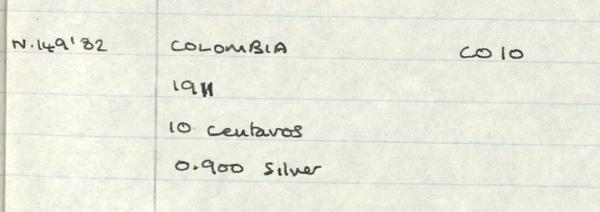 N.149'82 COLOMBIA CO10
1911
10 Centavos
0.900 Silver